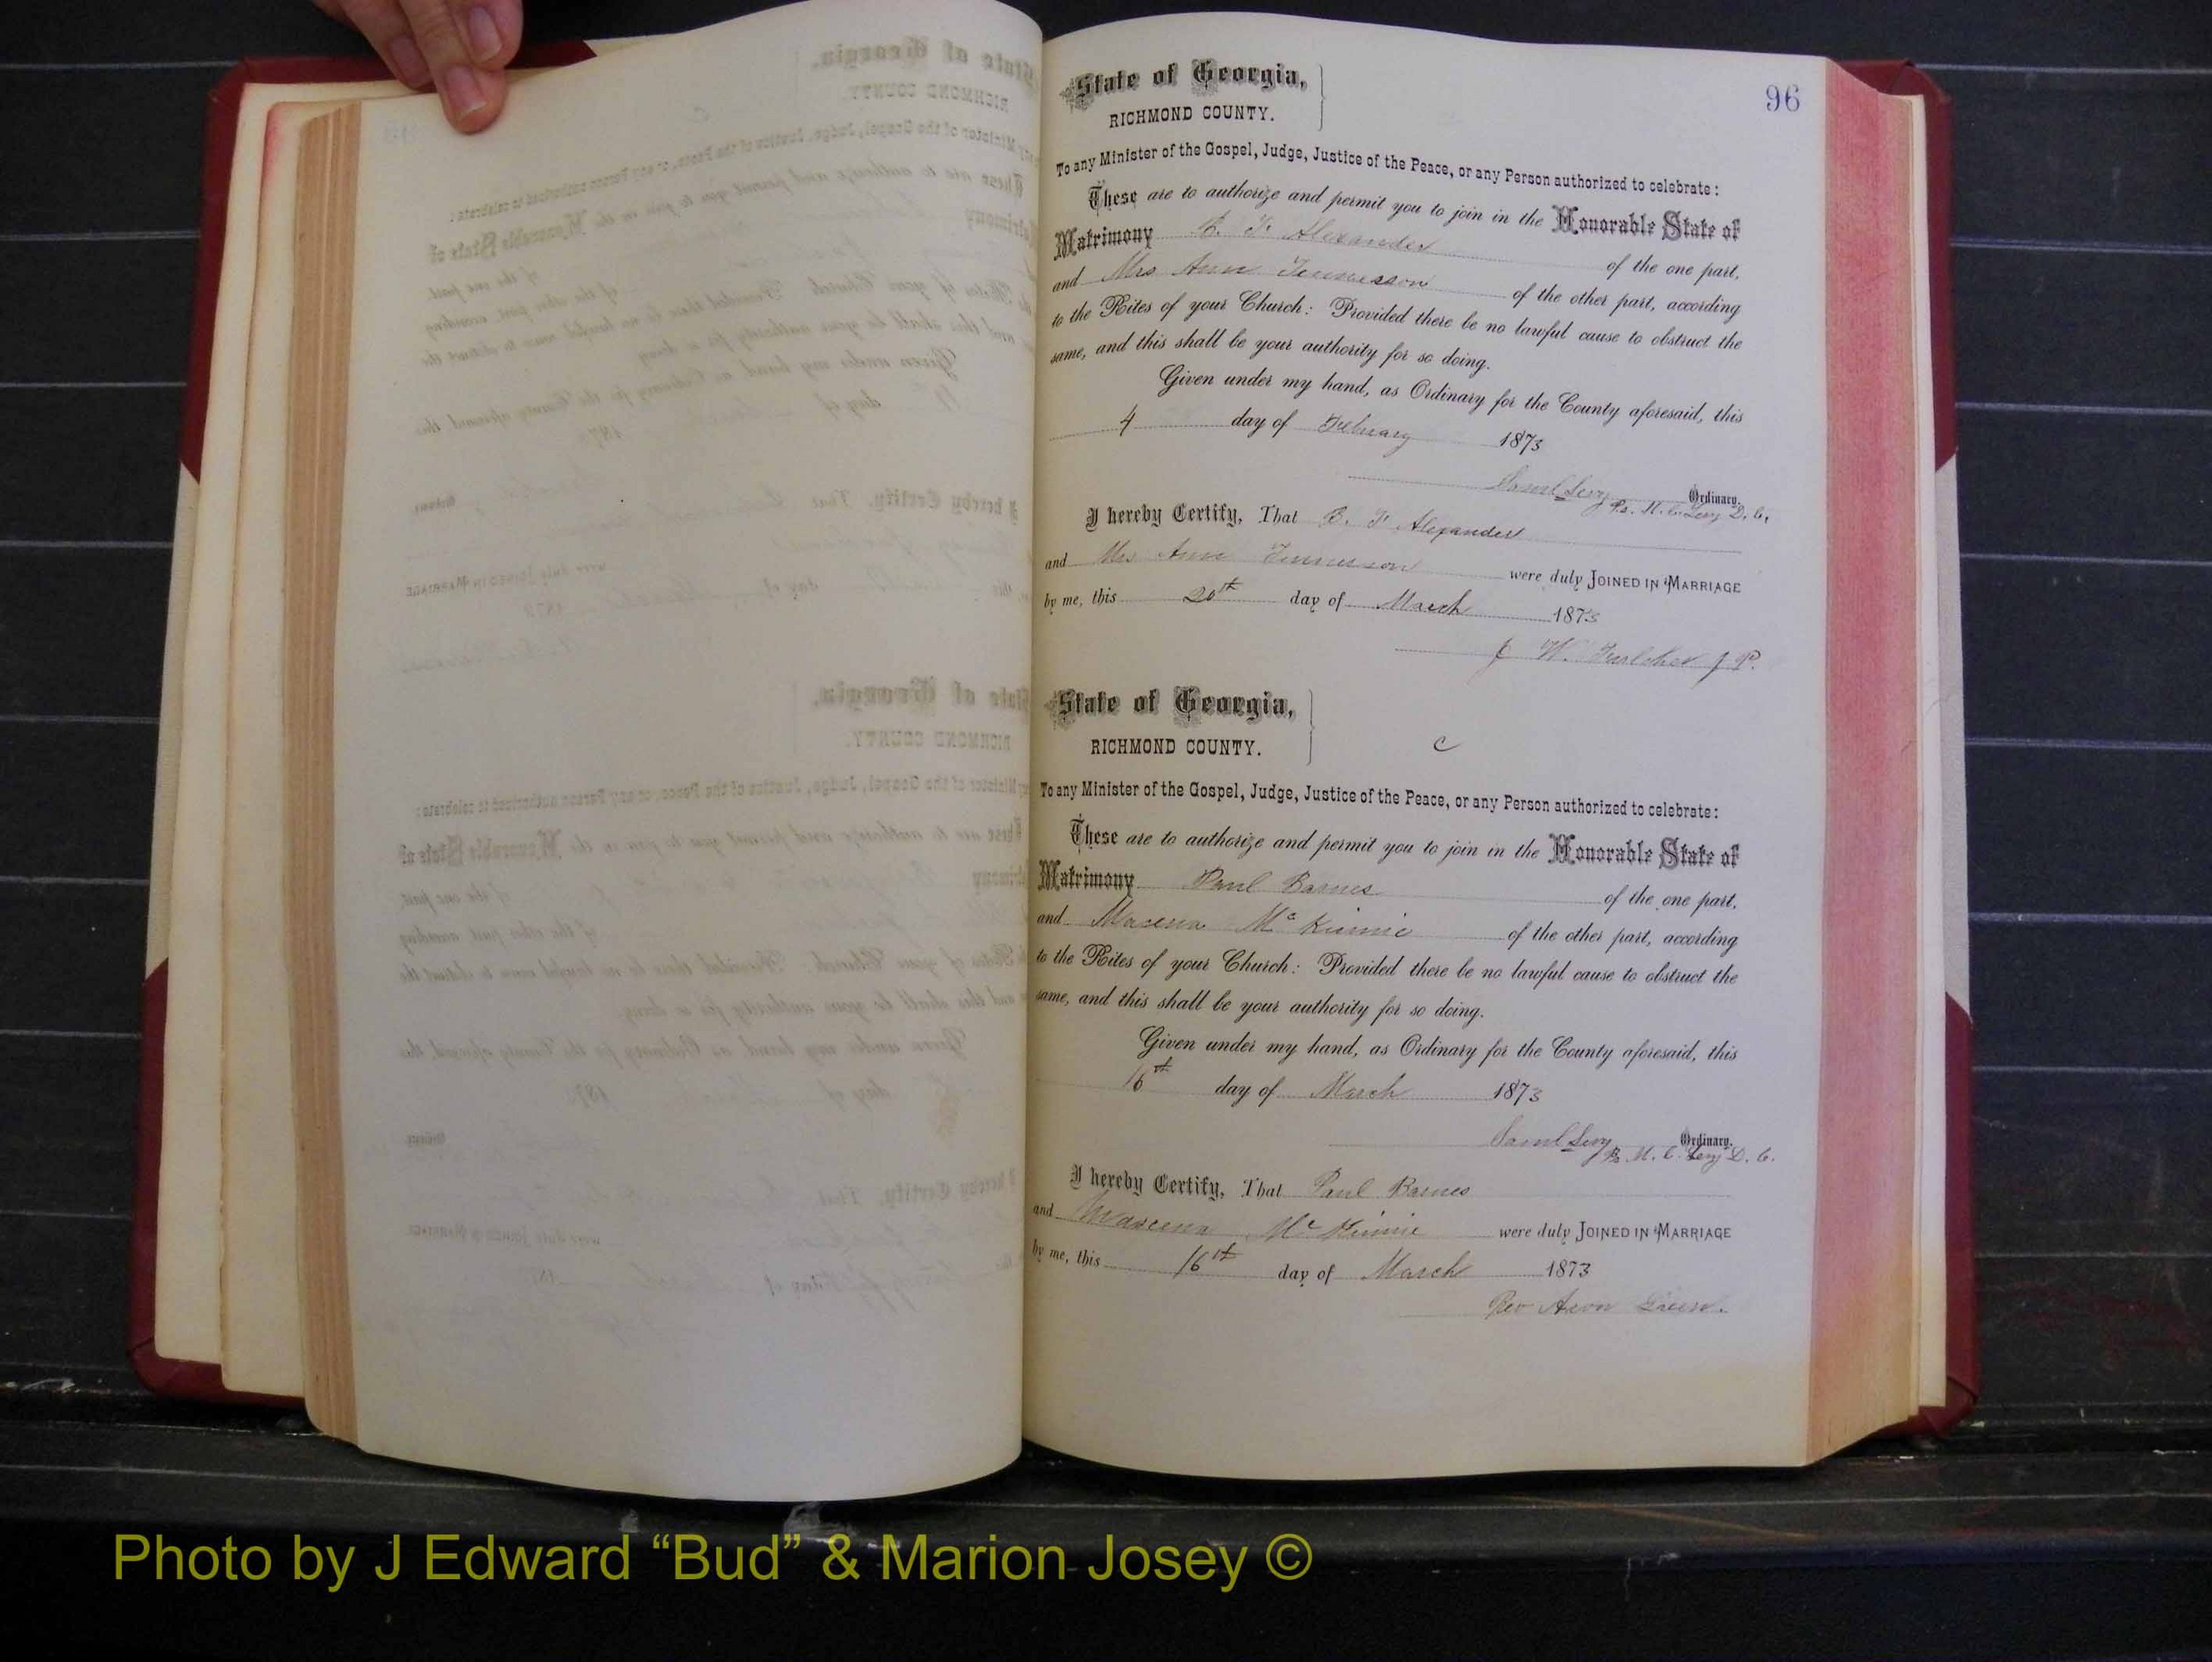 96
State of Georgia,
RICHMOND COUNTY.
To any Minister of the Gospel, Judge, Justice of the Peace, or any Person authorized to celebrate:
These are to authorize and permit you to join in the Honorable State of
Matrimony B. F. Alexander of the one part,
and Mrs Ann Tennisson of the other part, according
to the Rites of your Church: Provided there be no lawful cause to obstruct the
same, and this shall be your authority for so doing.
Given under my hand, as Ordinary for the County aforesaid, this
4 day of February 1873
Saml Levy Ordinary.
M. C. Levy D. C.
I hereby Certify, That B. F. Alexander
and Mrs Ann were duly JOINED IN MARRIAGE
by me, this 20th day of March 1873
J W. J P.
State of Georgia,
RICHMOND COUNTY.
C
To any Minister of the Gospel, Judge, Justice of the Peace, or any Person authorized to celebrate:
These are to authorize and permit you to join in the Honorable State of
Matrimony Paul Barnes of the one part,
and Macena Mc Kinnie of the other part, according
to the Rites of your Church: Provided there be no lawful cause to obstruct the
same, and this shall be your authority for so doing.
Given under my hand, as Ordinary for the County aforesaid, this
16th day of March 1873
Saml Levy Ordinary.
M. C. Levy D. C.
I hereby Certify, That Paul Barnes
and Mc Kinnie were duly JOINED IN MARRIAGE
by me, this 16th day of March 1873
Rev Aron
Photo by J Edward “Bud” & Marion Josey ©